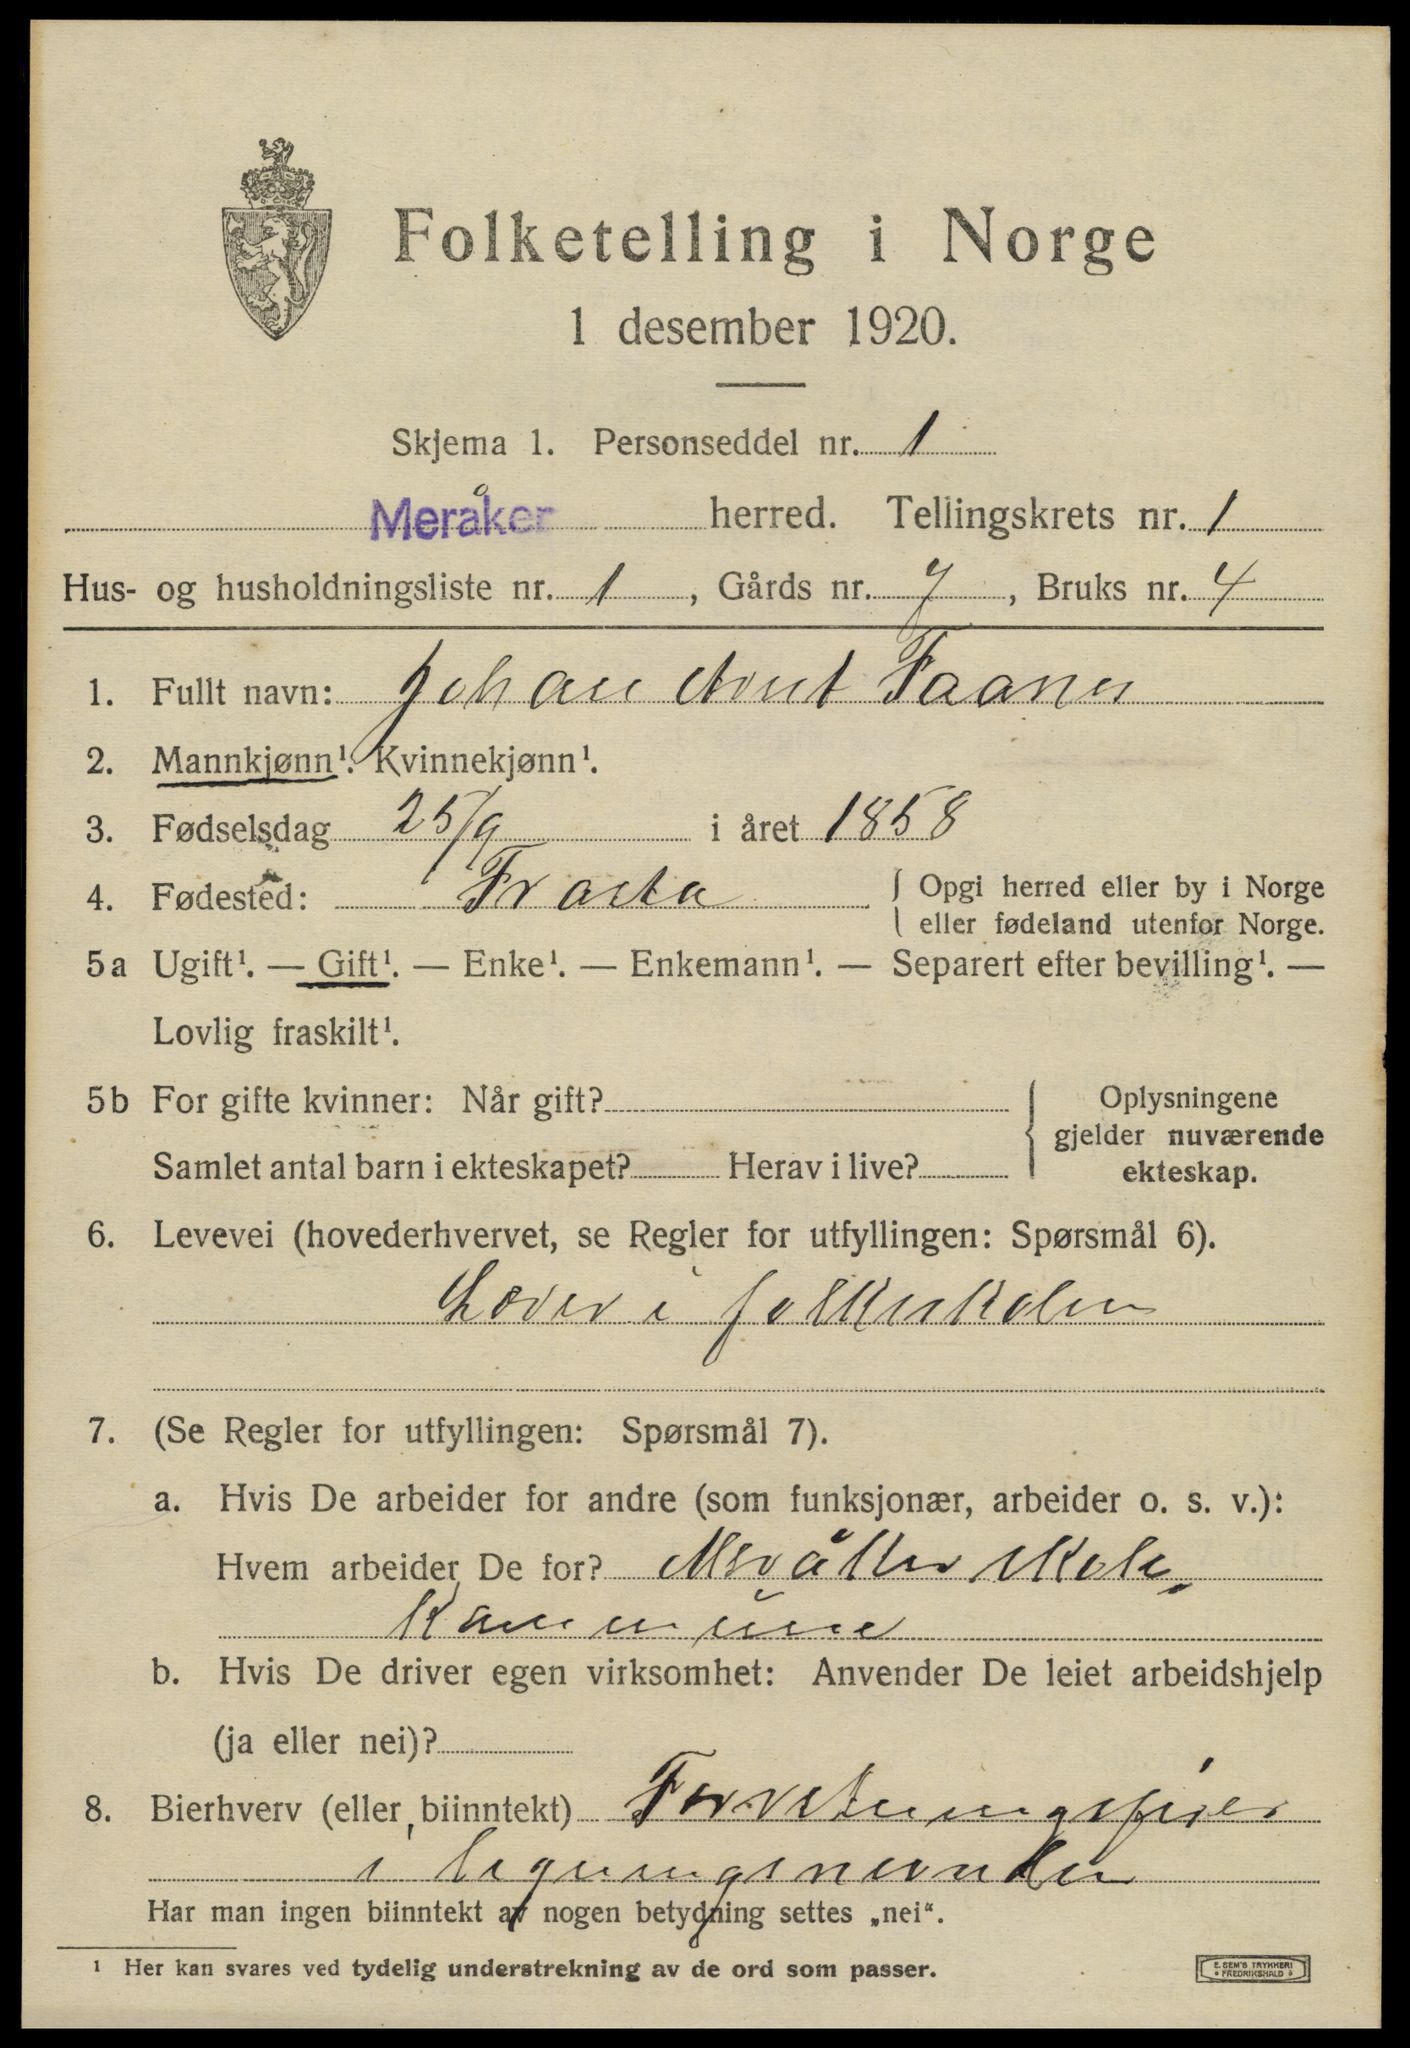 Folketelling i Norge
1 desember 1920.
Skjema 1. Personseddel nr. 1
Meråker herred. Tellingskrets nr. 1
Hus- og husholdningsliste nr. 1, Gårds nr. 7, Bruks nr. 4
1. Fullt navn: Johan Arnt Faanes
2. Mannkjønn¹. Kvinnekjønn¹.
3. Fødselsdag 25/9 i året 1858
4. Fødested: Frosta { Opgi herred eller by i Norge
eller fødeland utenfor Norge.
5a Ugift¹. — Gift¹. — Enke¹. — Enkemann¹. — Separert efter bevilling¹. —
Lovlig fraskilt¹.
5b For gifte kvinner: Når gift? { Oplysningene
gjelder nuværende
Samlet antal barn i ekteskapet? Herav i live?
ekteskap.
6. Levevei (hovederhvervet, se Regler for utfyllingen: Spørsmål 6).
Lærer i folkeskolen
7. (Se Regler for utfyllingen: Spørsmål 7).
a. Hvis De arbeider for andre (som funksjonær, arbeider o. s. v.):
Hvem arbeider De for? Meråker skole
kommune
b. Hvis De driver egen virksomhet: Anvender De leiet arbeidshjelp
(ja eller nei)?
8. Bierhverv (eller biinntekt) Forretningsfører
i ligningsnevnden
Har man ingen biinntekt av nogen betydning settes „nei“.
¹ Her kan svares ved tydelig understrekning av de ord som passer.
E. SEM'S TRYKKERI
FREDRIKSHALD